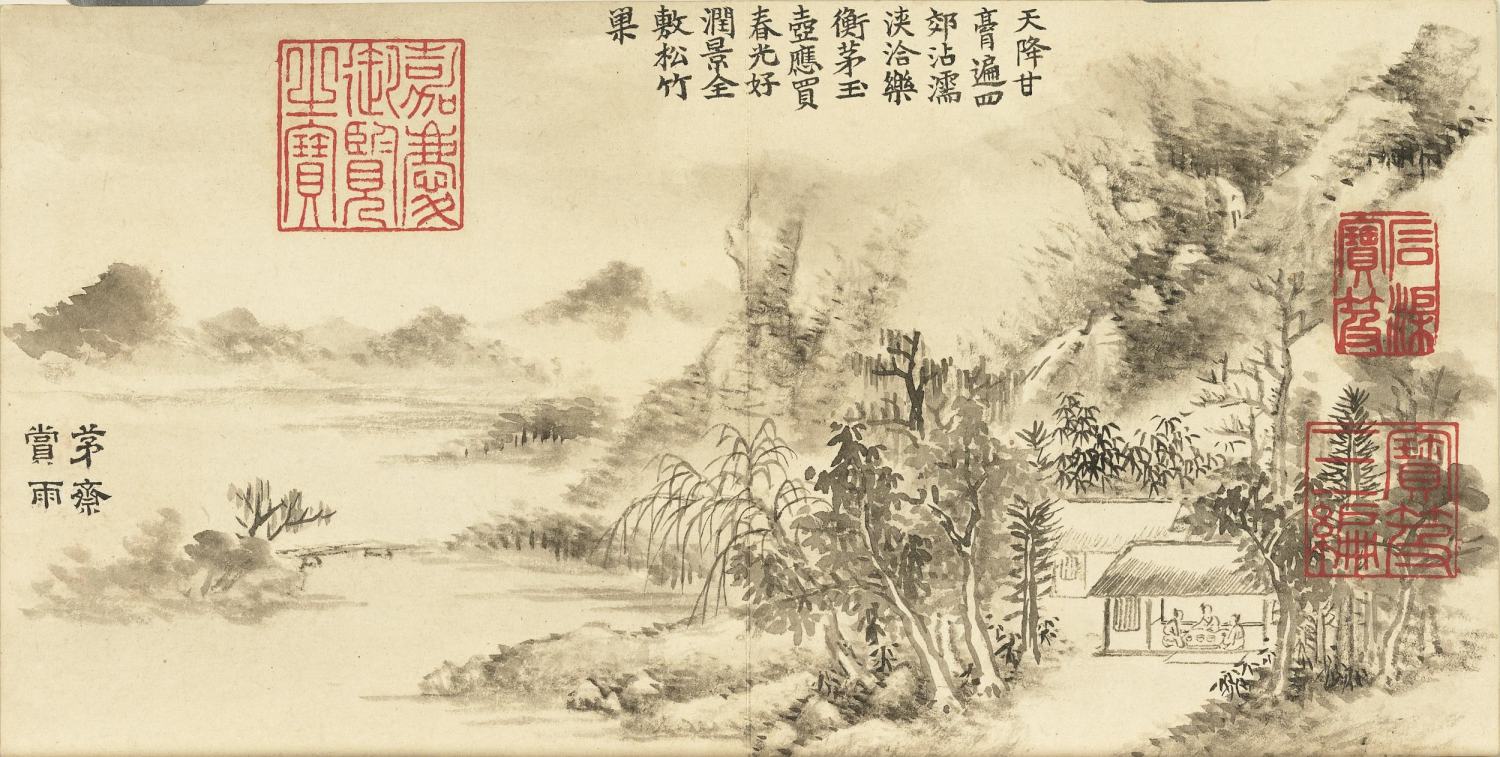 石渠
寶笈
寶笈
三編
天降甘
膏遍四
郊沾濡
浹洽樂
衡茅玉
壺應買
春光好
潤景全
敷松竹
巢
嘉慶
御覽
之寶
茅齋
賞雨